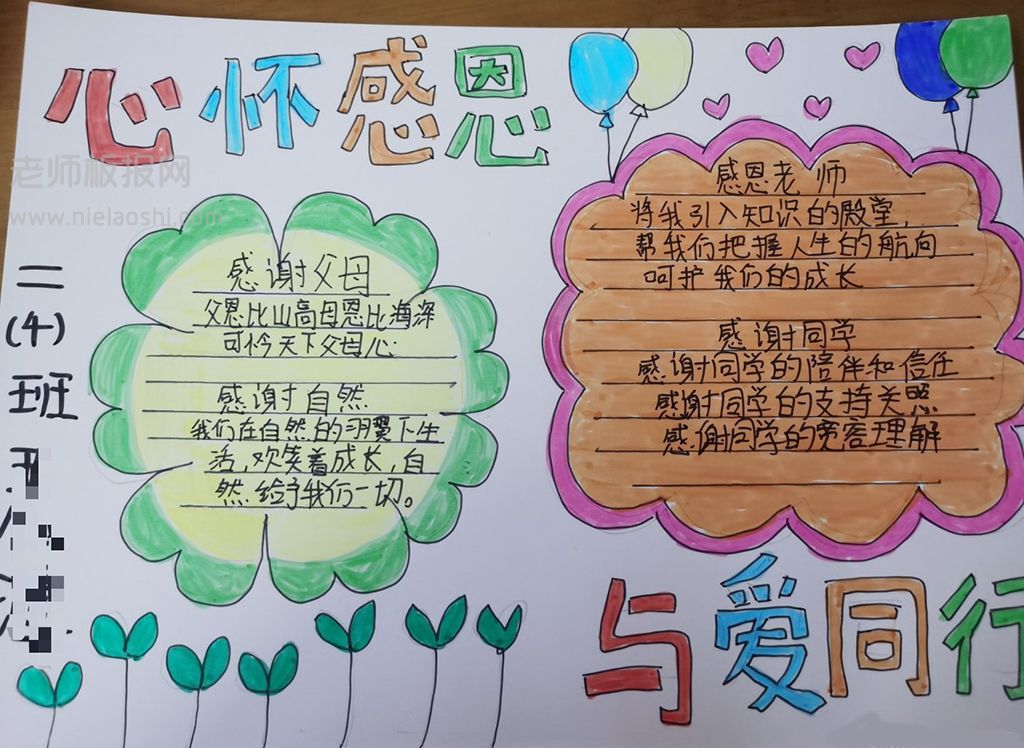 心怀感恩
老师板报网
www.nielaoshi.com
二
(4)
班
感谢父母
父恩比山高母恩比海深
可怜天下父母心
感谢自然
我们在自然的羽翼下生
活,欢笑着成长,自
然给予我们一切。
感恩老师
将我引入知识的殿堂,
帮我们把握人生的航向
呵护我们的成长
感谢同学
感谢同学的陪伴和信任
感谢同学的支持关照
感谢同学的宽容理解
与爱同行